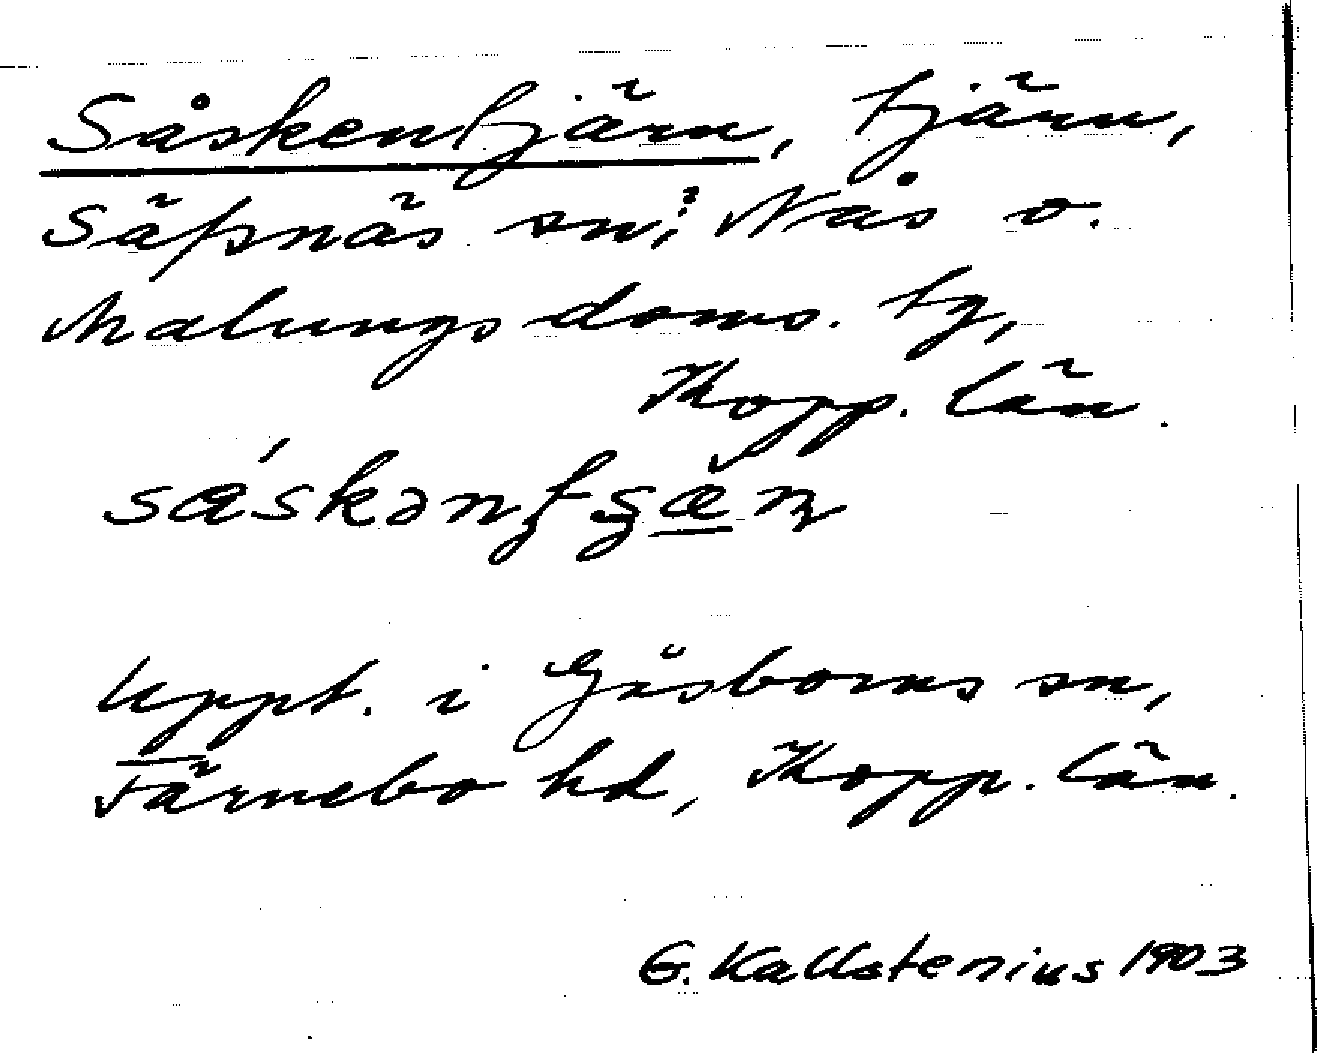 Såskentjärn, tjärn,
Säfsnäs sn; Nås o.
Malungs doms. tg,
Kopp. län.
Uppt. i Gåsborns sn,
Färnebo hd, Kopp. län.
G. Kallstenius 1903